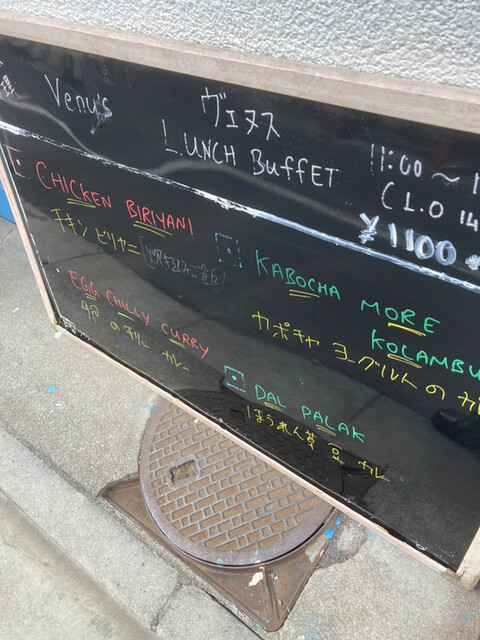 理
Venu's ヴェヌス
LUNCH BuffET 11:00 ~ 1
(L.O 14
¥1100
CHICKEN BIRIYANI
チキン ビリヤニ
EGG CHILLY CURRY
卵 の チリ カレー
KABOCHA MORE
KOLAMBU
カボチャ ヨーグルトの カ
DAL PALAK
ほうれん草 豆 カレー